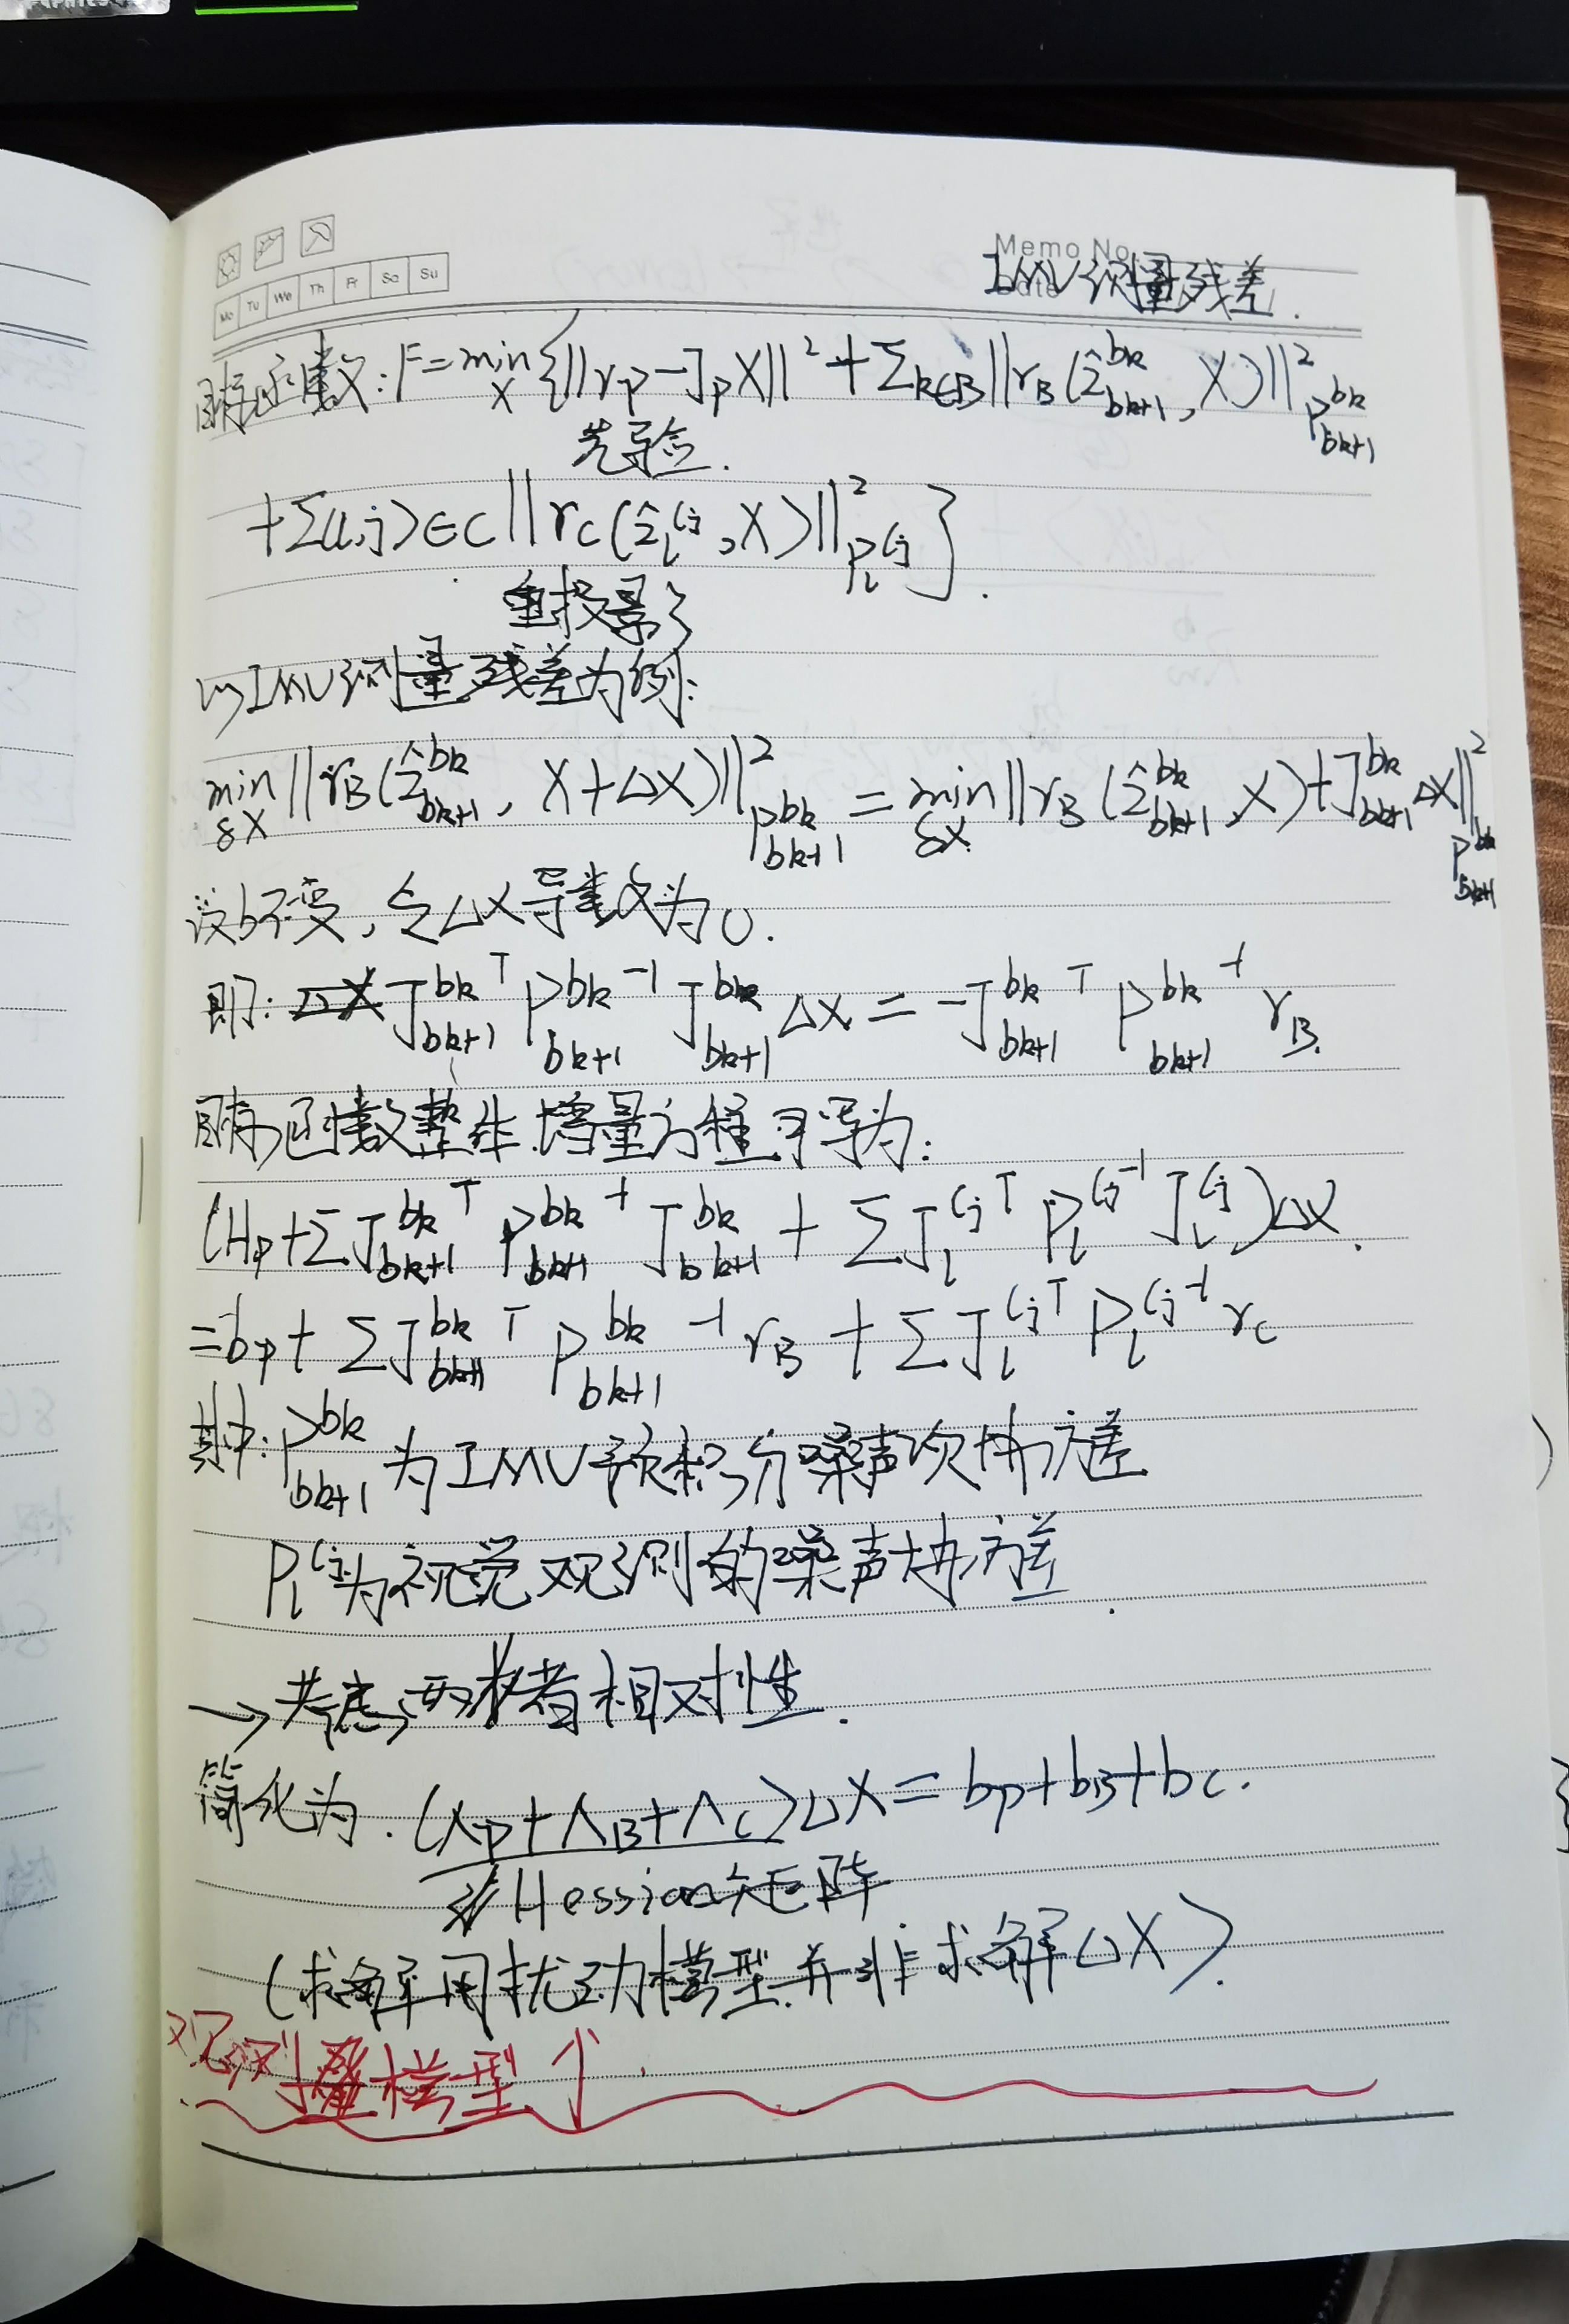 Memo No.
Date
Mo Tu We Th Fr Sa Su
IMU测量残差.
目标函数: F=min_X {||r_p-J_pX||² + Σ_{k∈B} ||r_B(ẑ_{bk+1}^{bk}, X)||²_{P_{bk+1}^{bk}}
先验.
+Σ(l,j)∈C ||r_C(ẑ_l^{Cj}, X)||²_{P_l^{Cj}}}.
重投影
以IMU测量残差为例:
min_{δX} ||r_B(ẑ_{bk+1}^{bk}, X+ΔX)||²_{P_{bk+1}^{bk}} = min_{δX} ||r_B(ẑ_{bk+1}^{bk}, X)+J_{bk+1}^{bk} ΔX||²_{P_{bk+1}^{bk}}
设b不变, 令ΔX导数为0.
即: J_{bk+1}^{bk T} P_{bk+1}^{bk -1} J_{bk+1}^{bk} ΔX = -J_{bk+1}^{bk T} P_{bk+1}^{bk -1} r_B.
目标函数整体增量方程可写为:
(H_p+ΣJ_{bk+1}^{bk T} P_{bk+1}^{bk -1} J_{bk+1}^{bk} + ΣJ_l^{Cj T} P_l^{Cj -1} J_l^{Cj})ΔX.
=b_p+ ΣJ_{bk+1}^{bk T} P_{bk+1}^{bk -1} r_B + ΣJ_l^{Cj T} P_l^{Cj -1} r_C
其中: P_{bk+1}^{bk} 为IMU预积分噪声项协方差
P_l^{Cj}为视觉观测的噪声协方差.
→考虑两者相对性.
简化为. (Λ_P+Λ_B+Λ_C)ΔX=b_P+b_B+b_C.
Hession矩阵
(求解用扰动模型.并非求解ΔX).
观测量模型↑